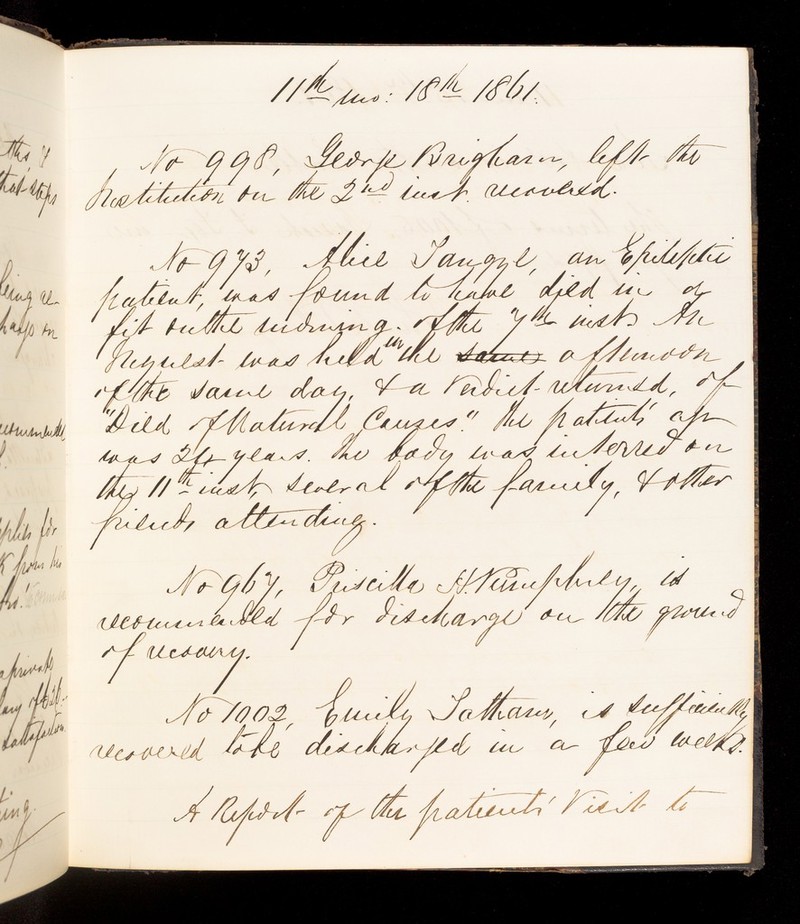 this, &
that steps
being re-
harge on
recommended
pplies for
from his
a private
satisfaction
ting.
11th mo: 18th 1861.
No 998, George Brigham, left the
Institution on the 2nd inst. recovered.
No 973, Alice Tangye, an Epileptic
patient, was found to have died in a
fit on the morning of the 7th inst. An
Inquest was held on the same afternoon
of the same day, & a Verdict returned, of
"Died of Natural Causes." The patients' age
was 24 years. The body was interred on
the 11th inst, several of the family, & other
friends attending.
No 967, Priscilla H. Pumphrey, is
recommended for discharge on the ground
of recovery.
No 1002, Emily Tatham, is sufficiently
recovered to be discharged in a few weeks.
A Report of the patients' Visit to